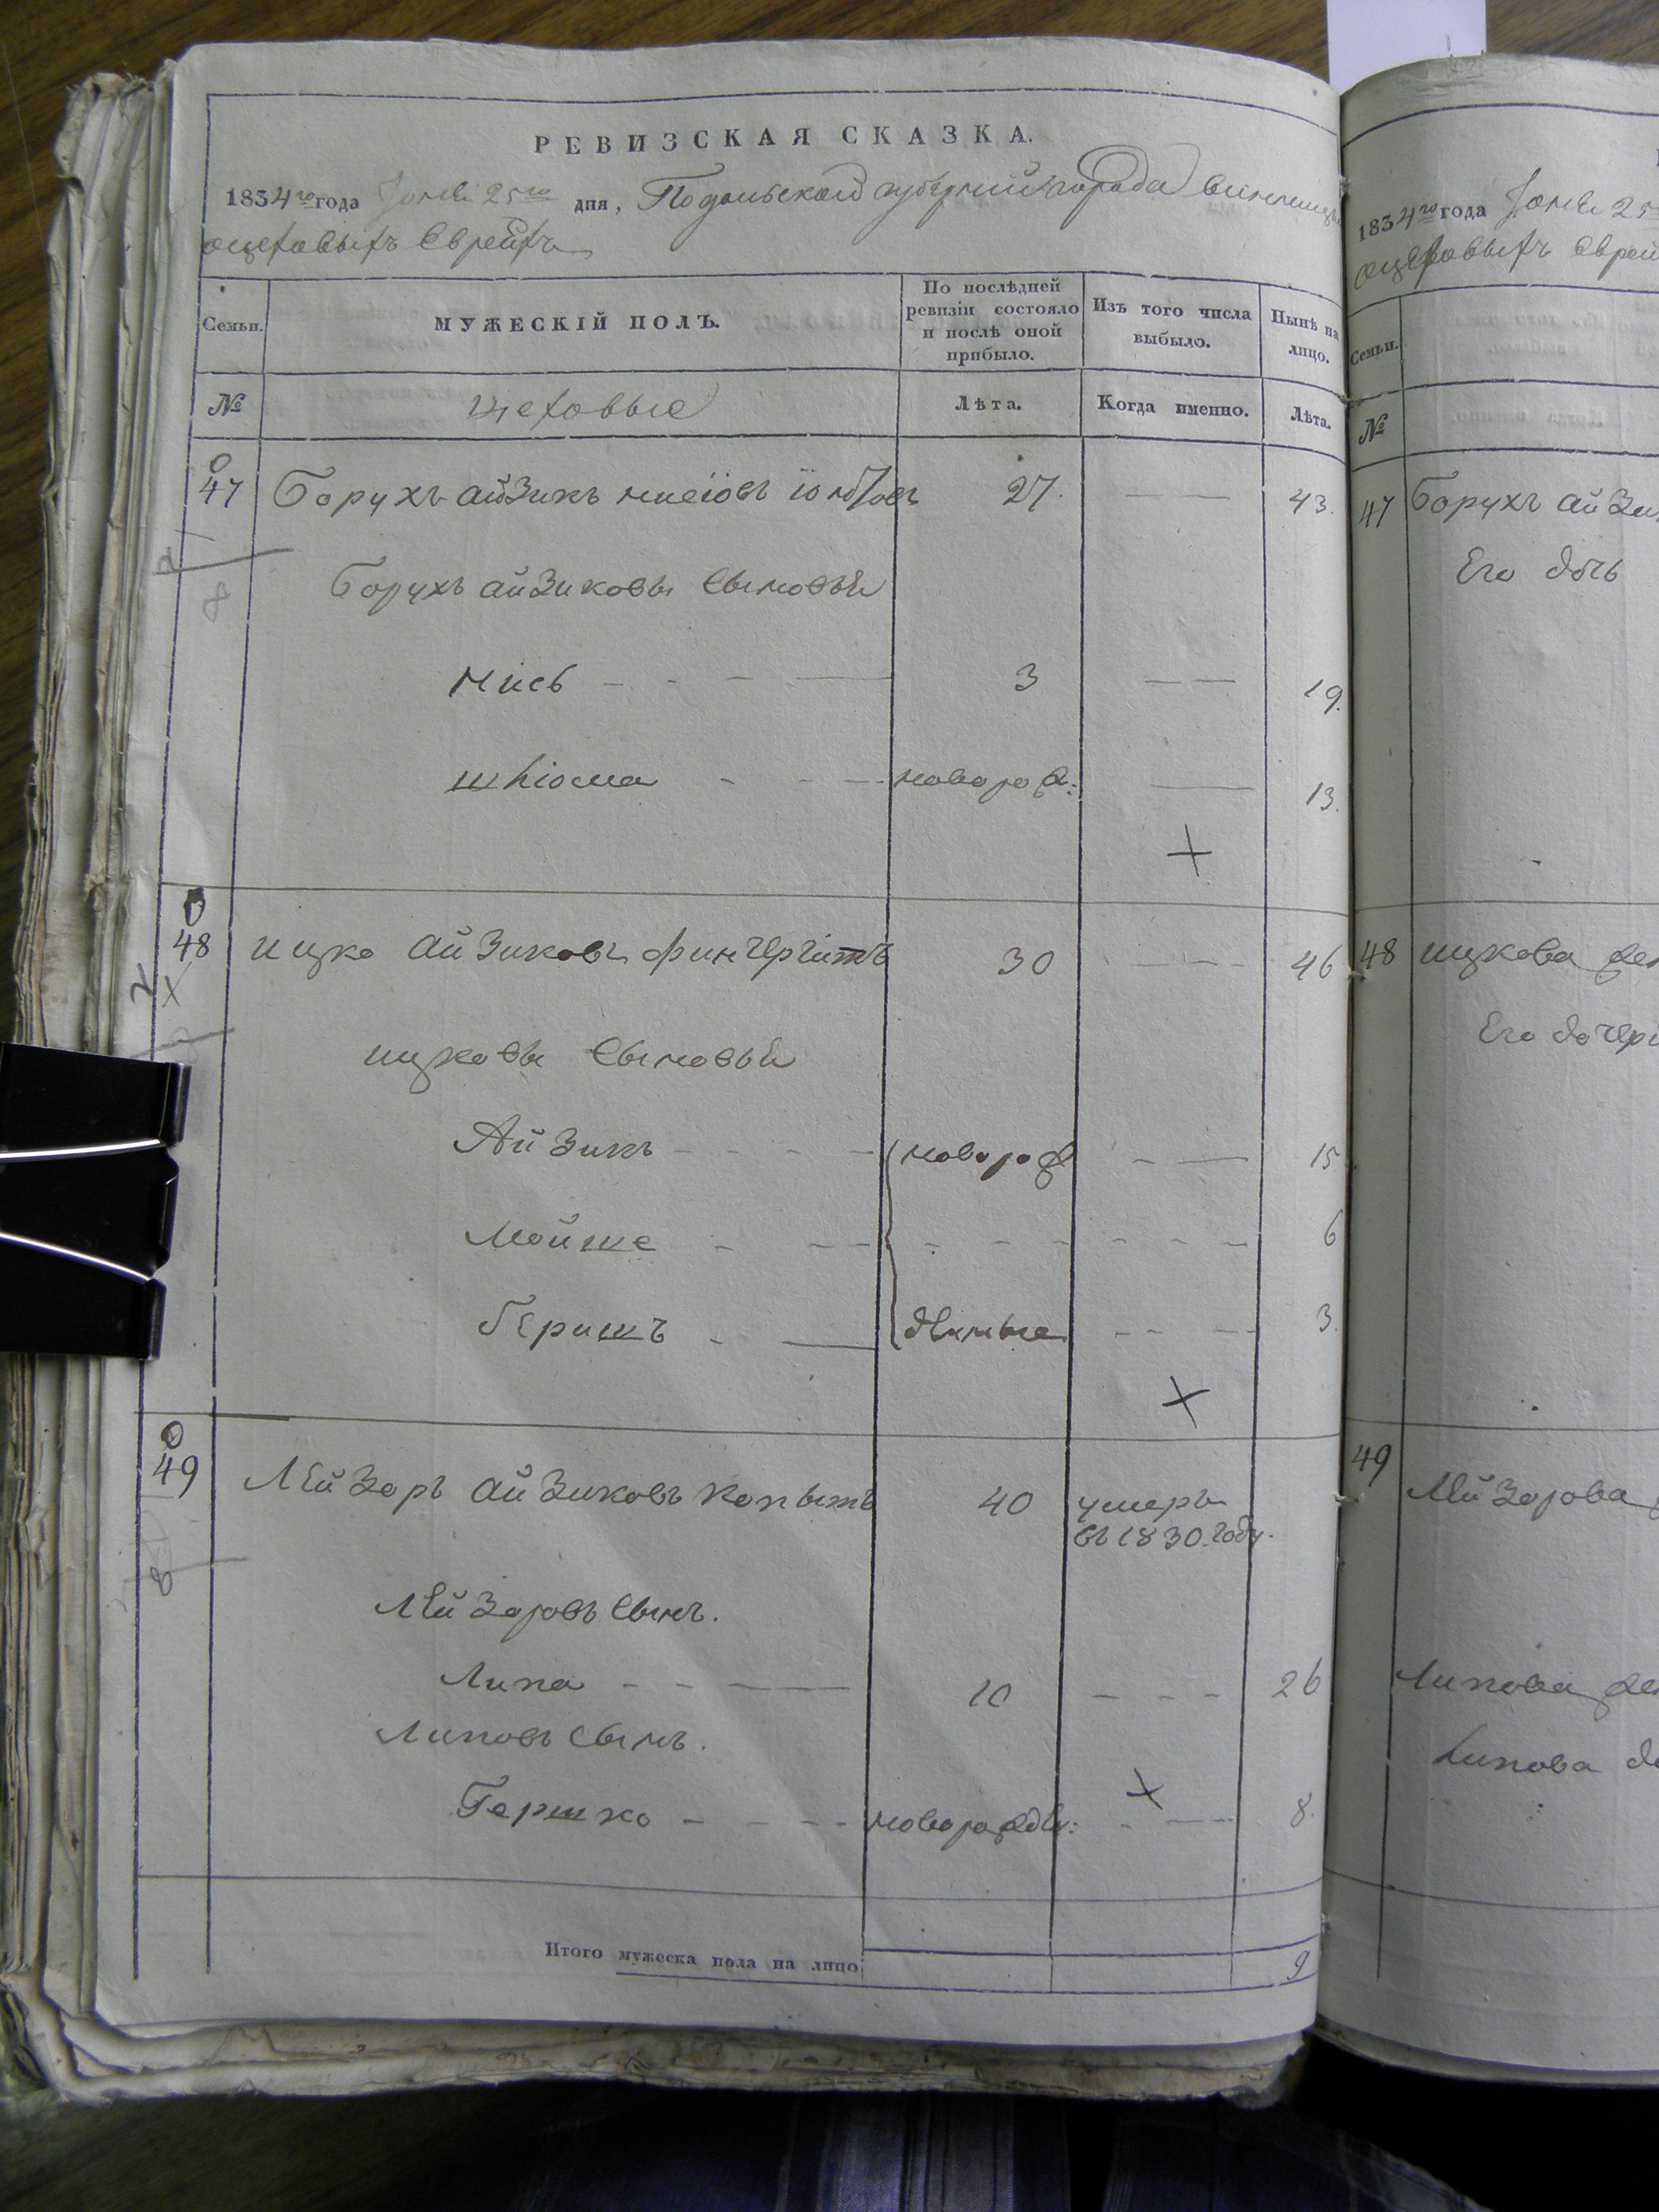 РЕВИЗСКАЯ СКАЗКА.
1834го года Іюня 25го дня, Подольской губерніи города
о цеховыхъ Евреяхъ
Семьи.
МУЖЕСКІЙ ПОЛЪ.
По послѣдней ревизіи состояло и послѣ оной прибыло.
Изъ того числа выбыло.
Нынѣ на лицо.
№
Цеховые
Лѣта.
Когда именно.
Лѣта.
47 Борухъ Айзикъ 27. 43.
Борухъ Айзиковы сыновья
3 19.
Шліома новорож: 13.
48 Ицко Айзиковъ 30 46
Ицковы сыновья
Айзикъ новорож 15
Мойше 6
Гершъ денные 3.
49 Лейзоръ Айзиковъ Копытъ 40 умеръ въ 1830. году.
Лейзоровъ сынъ.
Липа 10 26
Липовъ сынъ.
Гершко новорожден: 8.
Итого мужеска пола на лицо 9
1834го года Іюня 25
о цеховыхъ Евреи
Семьи.
№
47 Борухъ Айзи
Его дочь
48 Ицкова
Его дочери
49
Лейзорова
Липова
Липова